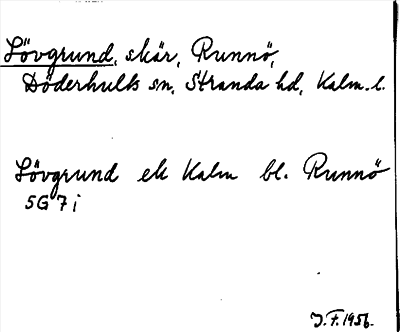 Lövgrund, skär, Runnö,
Döderhults sn, Stranda hd, Kalm. l.
Lövgrund ek Kalm bl. Runnö
5G 7i
J.F. 1956.